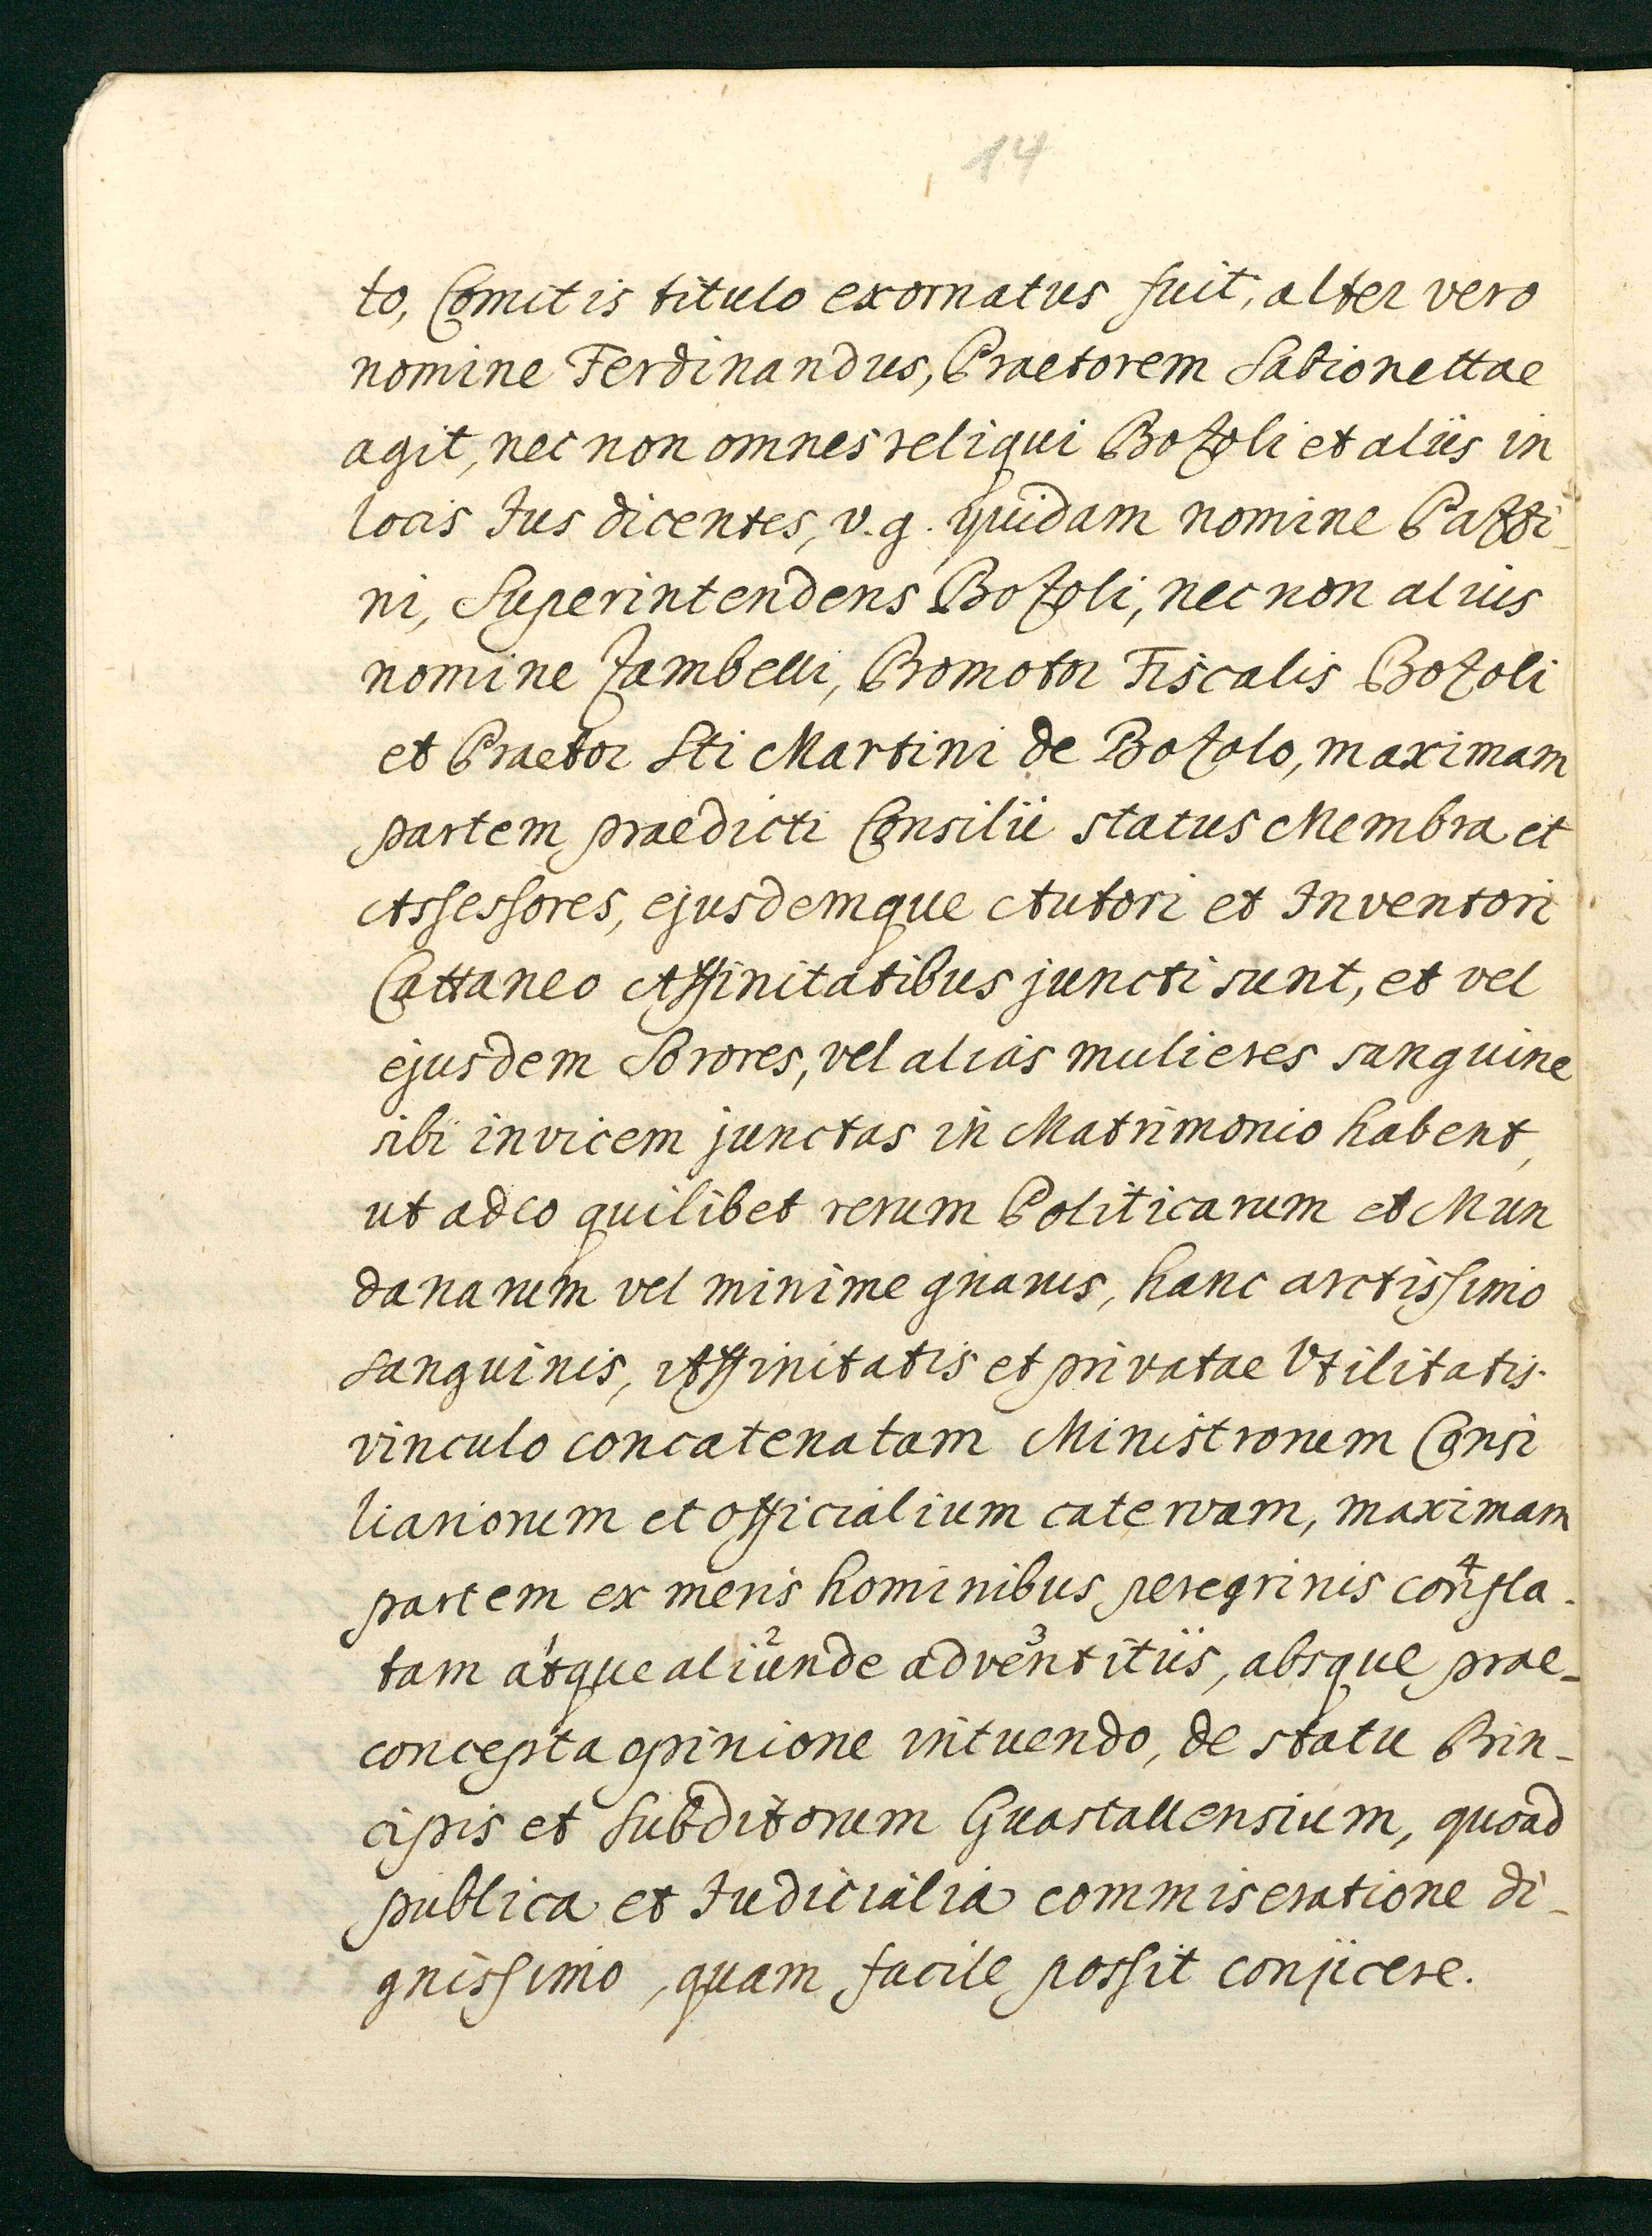 14
to, Comitis titulo exornatus fuit, alter vero
nomine Ferdinandus, Praetorem Sabionettae
agit, nec non omnes reliqui Bozoli et aliis in
locis Jus dicentes, v. g. quidam nomine Pazzi-
ni, Superintendens Bozoli, nec non alius
nomine Zambelli, Promotor Fiscalis Bozoli
et Praetor Sti Martini de Bozolo, maximam
partem praedicti Consilii status Membra et
Assessores, ejusdemque Autori et Inventori
Cattaneo Affinitatibus juncti sunt, et vel
ejusdem Sorores, vel alias mulieres sanguine
sibi invicem junctas in Matrimonio habent,
ut adeo quilibet rerum Politicarum et Mun
danarum vel minime gnarus, hanc arctissimo
sanguinis, Affinitatis et privatae Utilitatis
vinculo concatenatam Ministrorum Consi
liariorum et Officialium catervam, maximam
partem ex meris hominibus peregrinis con⁴fla-
tam a¹tque ali²unde adve³ntitiis, absque prae-
concepta opinione intuendo, de statu Prin-
cipis et Subditorum Guastallensium, quoad
publica et Judicialia commiseratione di-
gnissimo, quam facile possit conjicere.